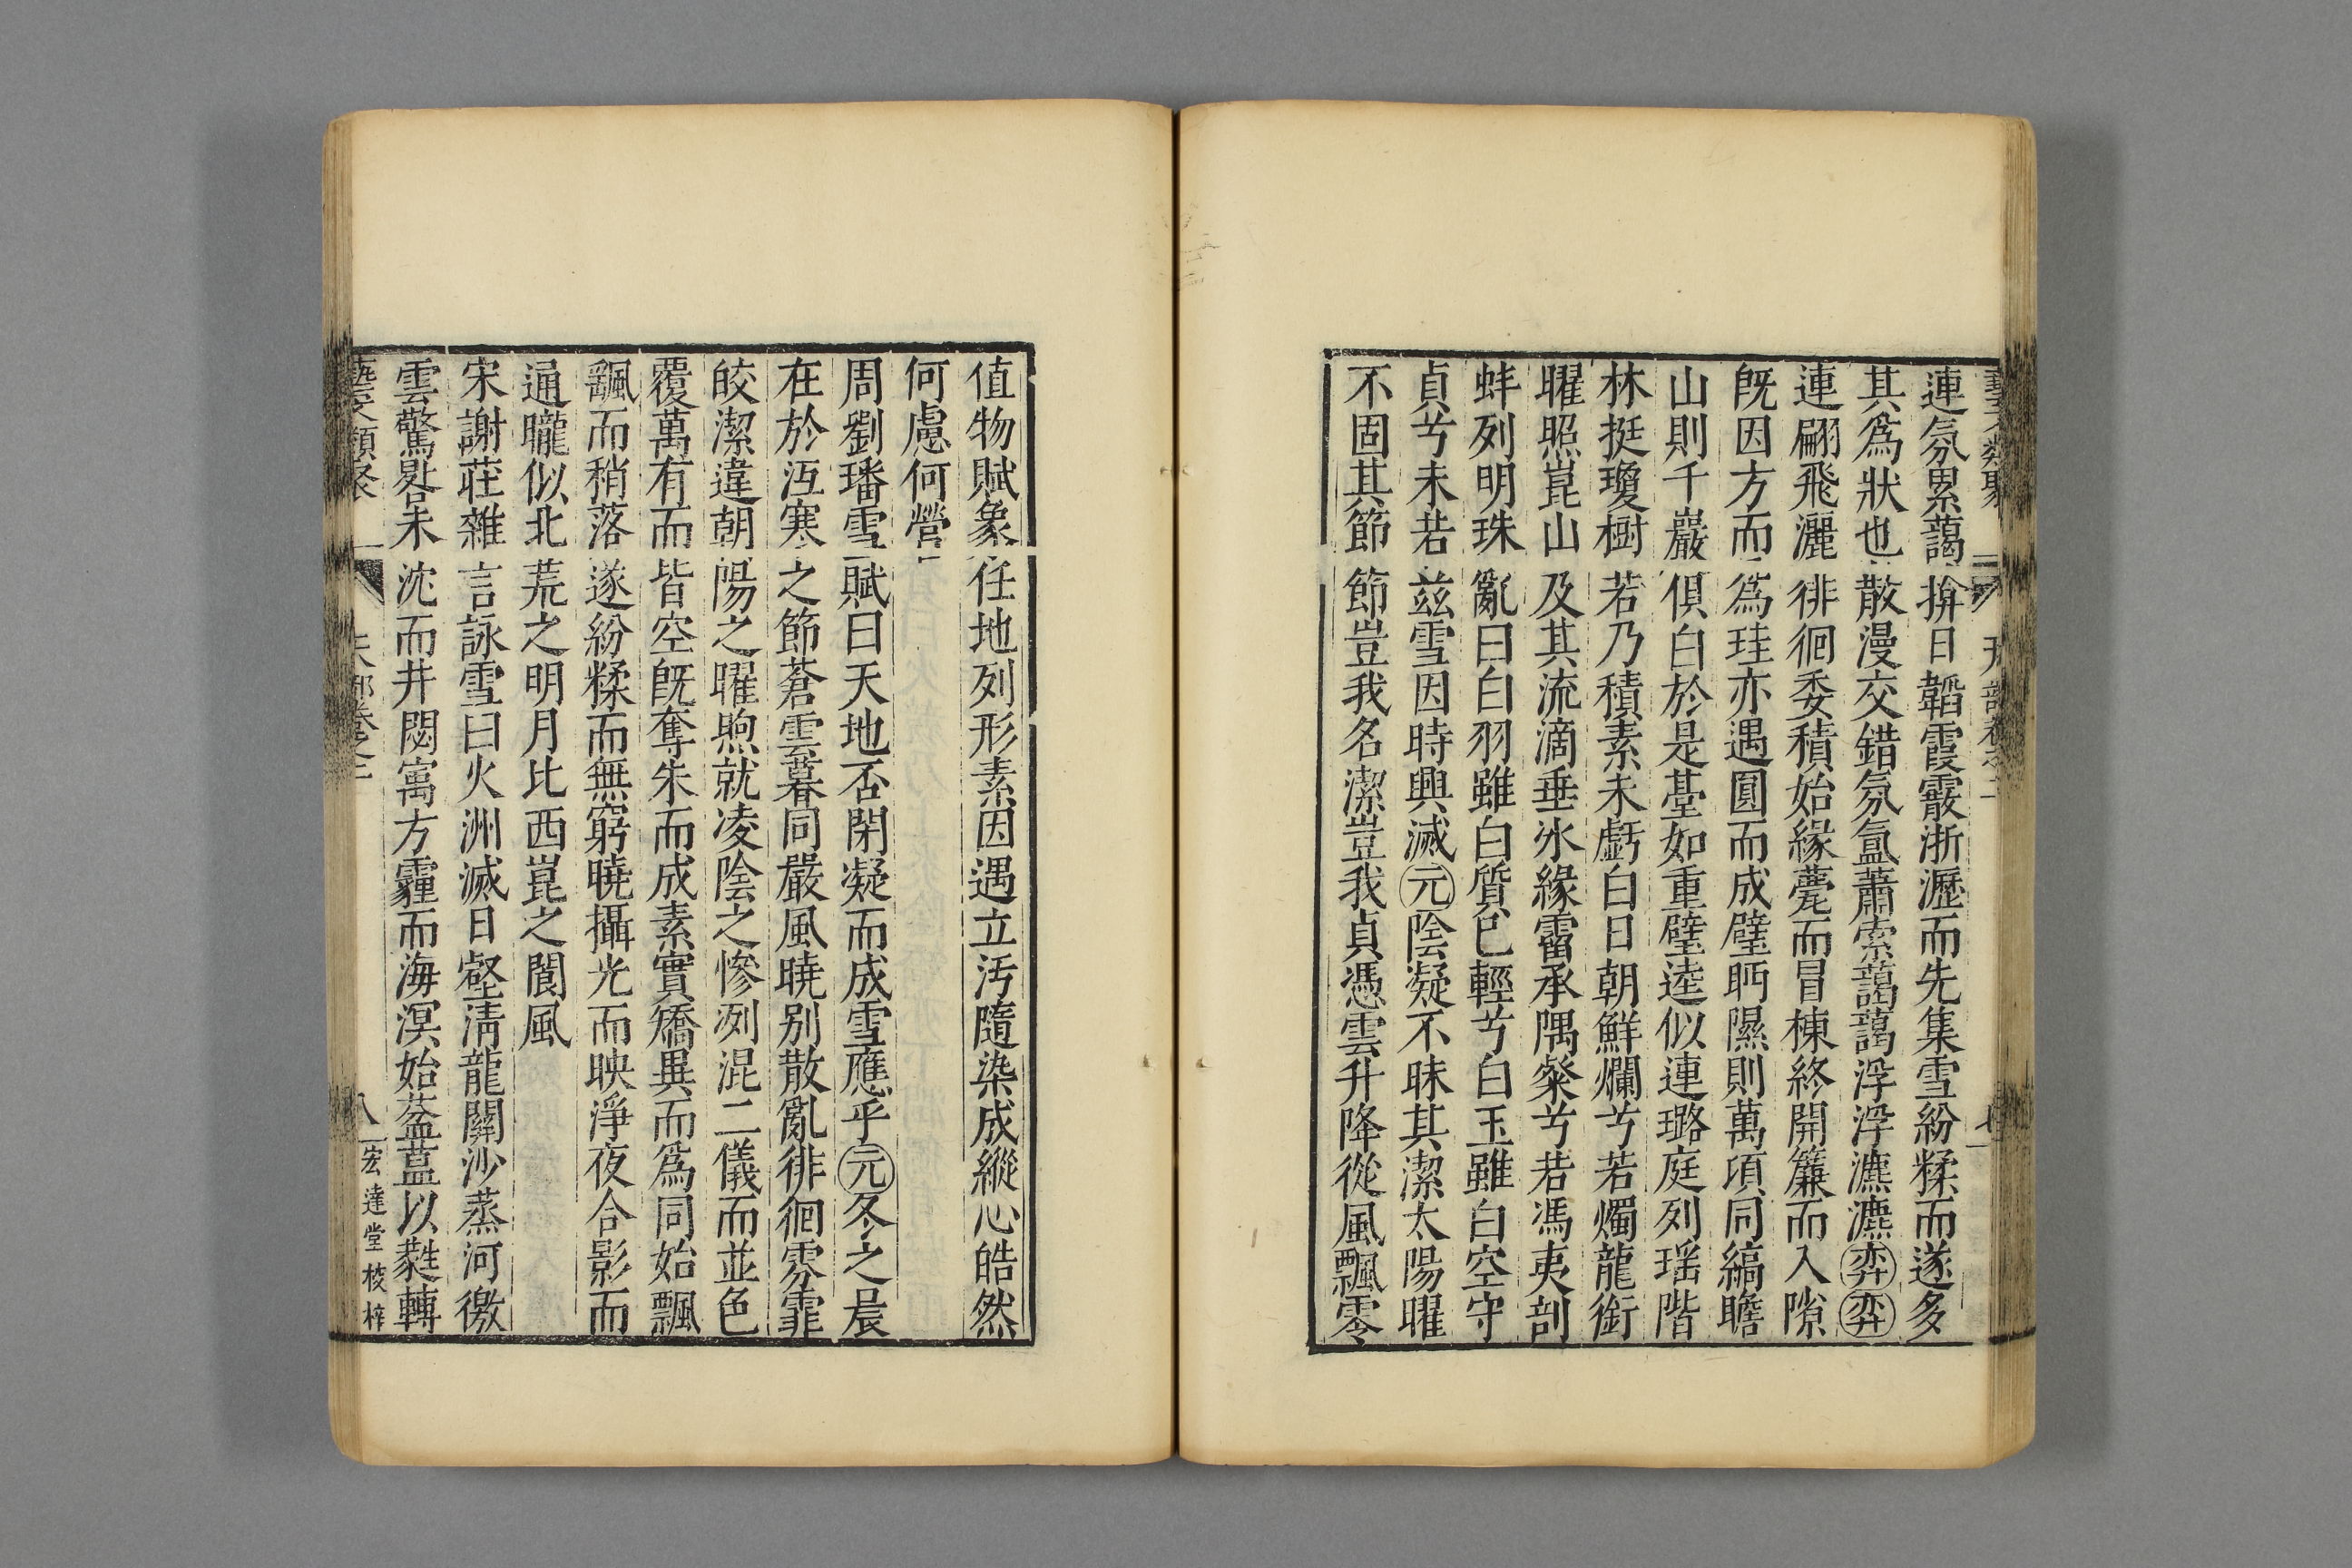 連氛累藹揜日韜霞霰淅瀝而先集雪紛糅而遂多
其爲狀也散漫交錯氛氳蕭索藹藹浮浮瀌瀌弈弈
連翩飛灑徘徊委積始緣甍而冒棟終開簾而入隙
旣因方而爲珪亦遇圓而成璧眄隰則萬頃同縞瞻
山則千巖俱白於是臺如重璧逵似連璐庭列瑶階
林挺瓊樹若乃積素未虧白日朝鮮爛兮若燭龍銜
曜照崑山及其流滴垂氷緣霤承隅粲兮若馮夷剖
蚌列明珠亂曰白羽雖白質已輕兮白玉雖白空守
貞兮未若兹雪因時興滅元陰凝不昧其潔太陽曜
不固其節節豈我名潔豈我貞憑雲升降從風飄零
值物賦象任地列形素因遇立汚隨染成縱心皓然
何慮何營
周劉璠雪賦曰天地否閉凝而成雪應乎元冬之晨
在於沍寒之節蒼雲暮同嚴風曉别散亂徘徊雰霏
皎潔違朝陽之曜煦就凌陰之慘冽混二儀而並色
覆萬有而皆空旣奪朱而成素實矯異而爲同始飄
颻而稍落遂紛糅而無窮曉攝光而映淨夜合影而
通朧似北荒之明月比西崑之閬風
宋謝莊雜言詠雪曰火洲滅日壑清龍關沙蒸河徼
雲驚晷未沈而井閟寓方霾而海溟始葢葢以蕤轉
藝文類聚 天部卷之二 八 宏達堂校梓